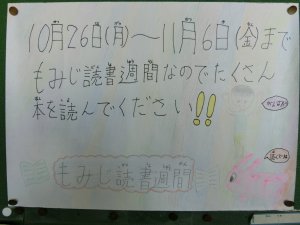 10月26日(月)～11月6日(金)まで
もみじ読書週間なのでたくさん
本を読んでください!!
もみじ読書週間